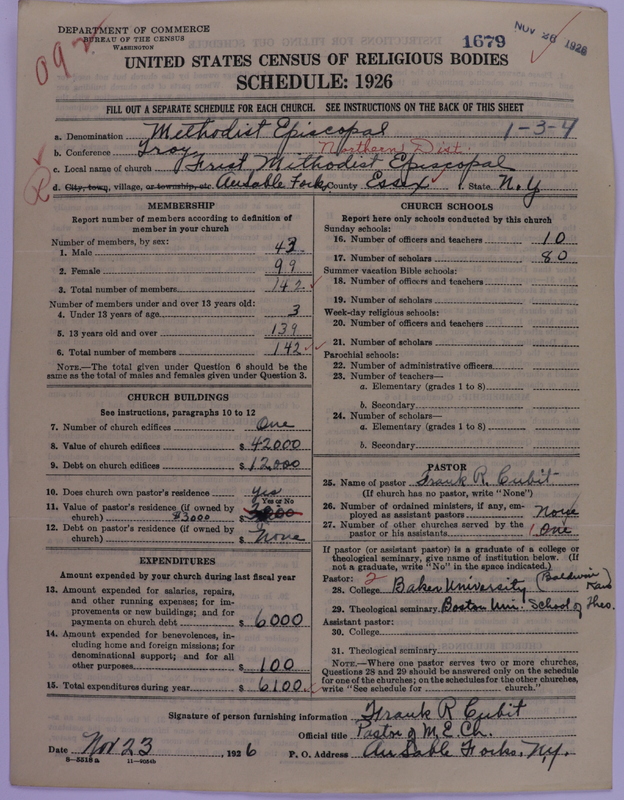 DEPARTMENT OF COMMERCE
BUREAU OF THE CENSUS
WASHINGTON
1679
NOV 26 1926
UNITED STATES CENSUS OF RELIGIOUS BODIES
SCHEDULE: 1926
FILL OUT A SEPARATE SCHEDULE FOR EACH CHURCH. SEE INSTRUCTIONS ON THE BACK OF THIS SHEET
a. Denomination Methodist Episcopal 1-3-4
b. Conference Troy Northern Dist.
c. Local name of church First Methodist Episcopal
d. City, town, village, or township, etc AuSable Forks County Essex State N.Y
MEMBERSHIP
Report number of members according to definition of member in your church
Number of members, by sex:
1. Male 43
2. Female 99
3. Total number of members 142
Number of members under and over 13 years old:
4. Under 13 years of age 3
5. 13 years old and over 139
6. Total number of members 142
NOTE.—The total given under Question 6 should be the
same as the total of males and females given under Question 3.
CHURCH BUILDINGS
See instructions, paragraphs 10 to 12
7. Number of church edifices One
8. Value of church edifices $42000
9. Debt on church edifices $12,000
10. Does church own pastor's residence yes
Yes or No
11. Value of pastor's residence (if owned by
church) $3000 $
12. Debt on pastor's residence (if owned by
church) $ None
EXPENDITURES
Amount expended by your church during last fiscal year
13. Amount expended for salaries, repairs,
and other running expenses; for im-
provements or new buildings; and for
payments on church debt $6000
14. Amount expended for benevolences, in-
cluding home and foreign missions; for
denominational support; and for all
other purposes $100
15. Total expenditures during year $6100
CHURCH SCHOOLS
Report here only schools conducted by this church
Sunday schools:
16. Number of officers and teachers 10
17. Number of scholars 80
Summer vacation Bible schools:
18. Number of officers and teachers
19. Number of scholars
Week-day religious schools:
20. Number of officers and teachers
21. Number of scholars
Parochial schools:
22. Number of administrative officers
23. Number of teachers—
a. Elementary (grades 1 to 8)
b. Secondary
24. Number of scholars—
a. Elementary (grades 1 to 8)
b. Secondary
PASTOR
25. Name of pastor Frank R. Cubit
(If church has no pastor, write "None")
26. Number of ordained ministers, if any, em-
ployed as assistant pastors None
27. Number of other churches served by the
pastor or his assistants 1 One
If pastor (or assistant pastor) is a graduate of a college or
theological seminary, give name of institution below. (If
not a graduate, write "No" in the space indicated.)
Pastor: 2
28. College Baker University (Baldwin Kans
29. Theological seminary Boston Uni. School of Theo.
Assistant pastor:
30. College
31. Theological seminary
NOTE.—Where one pastor serves two or more churches,
Questions 28 and 29 should be answered only on the schedule
for one of the churches; on the schedules for the other churches,
write "See schedule for church."
Signature of person furnishing information Frank R Cubit
Official title Pastor of M.E. Ch.
Date Nov 23, 1926 P. O. Address Au Sable Forks, N.Y.
8-5518 a